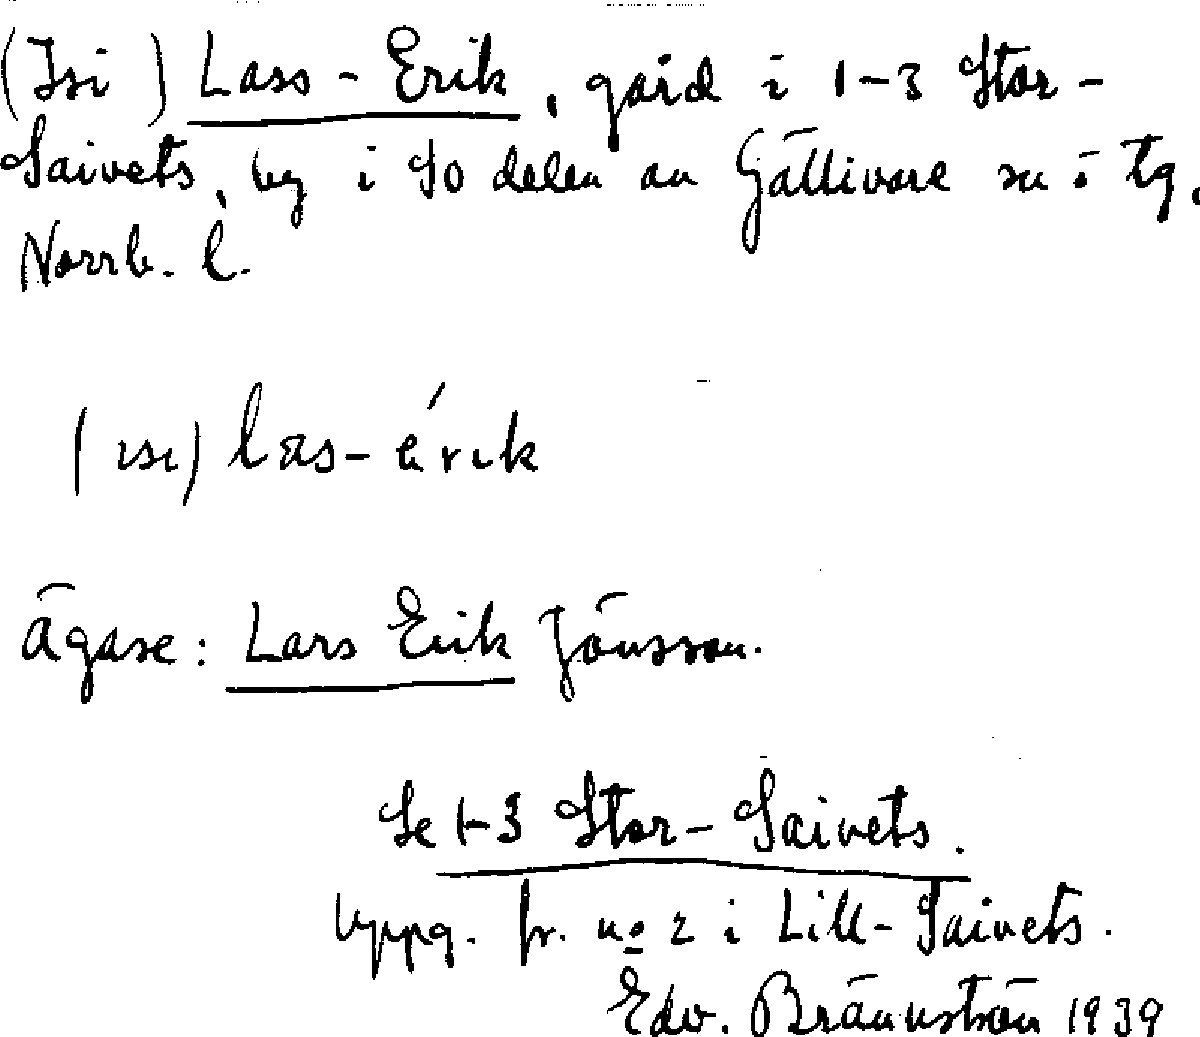 (Isi) Lass-Erik, gård i 1-3 Stor-
Saivets, by i So delen av Gällivare sn o tg,
Norrb. l.
(ısı) las-érık
Ägare: Lars Erik Jönsson.
Se 1-3 Stor-Saivets.
Uppg. fr. no 2 i Lill-Saivets.
Edv. Brännström 1939